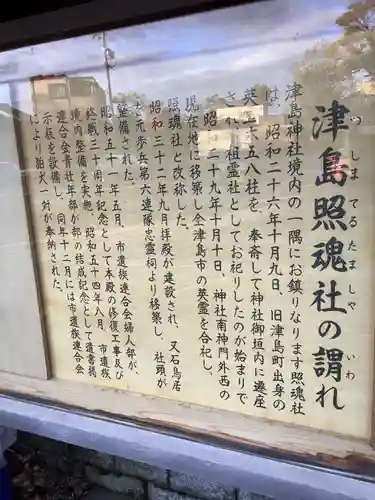 津島照魂社の謂れ
つしまてるたましゃ いわ
津島神社境内の一隅にお鎮りなります照魂社
は、昭和二十六年十月九日、旧津島町出身の
英霊六五八柱を、奉斎して神社御垣内に遷座
され、祖霊社としてお祀りしたのが始まりで
昭和二十九年十月十日、神社南神門外西の
現在地に移築し全津島市の英霊を合祀し、
照魂社と改称した。
昭和三十二年九月拝殿が建設され、又石鳥居
も元歩兵第六連隊忠霊祠より移築し、社頭が
整備された。
昭和五十一年五月、市遺族連合会婦人部が、
終戦三十周年記念として本殿の修復工事及び
境内整備を実施、昭和五十四年八月、市遺族
連合会青壮年部が部の結成記念として遺書掲
示板を設備し、同年十二月には市遺族連合会
により狛犬一対が奉納された。